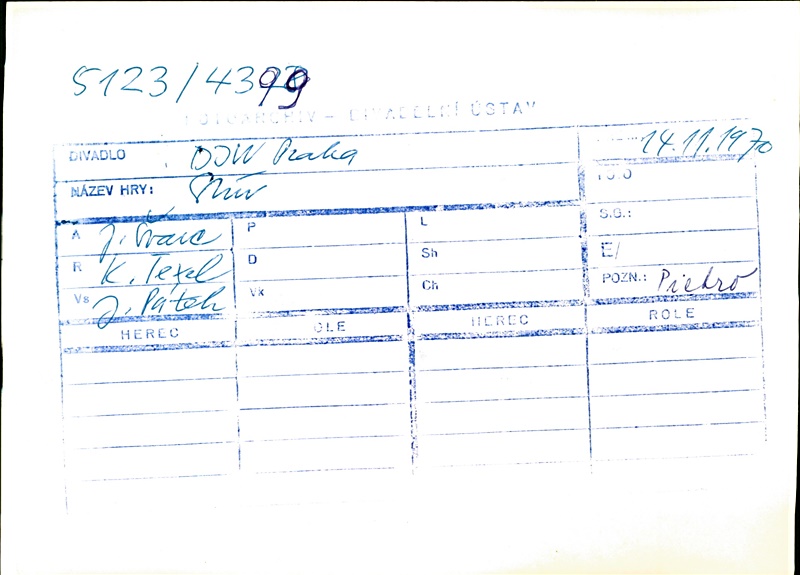 5123/4399
FOTOARCHIV - DIVADELNÍ ÚSTAV
DIVADLO DJW Praha 14.11.1970
NÁZEV HRY: Stín
A J. Švarc P L S.G.:
R K. Texel D Sh E/
Vs J. Pátek Vk Ch POZN.: Piehro
HEREC OLE HEREC ROLE